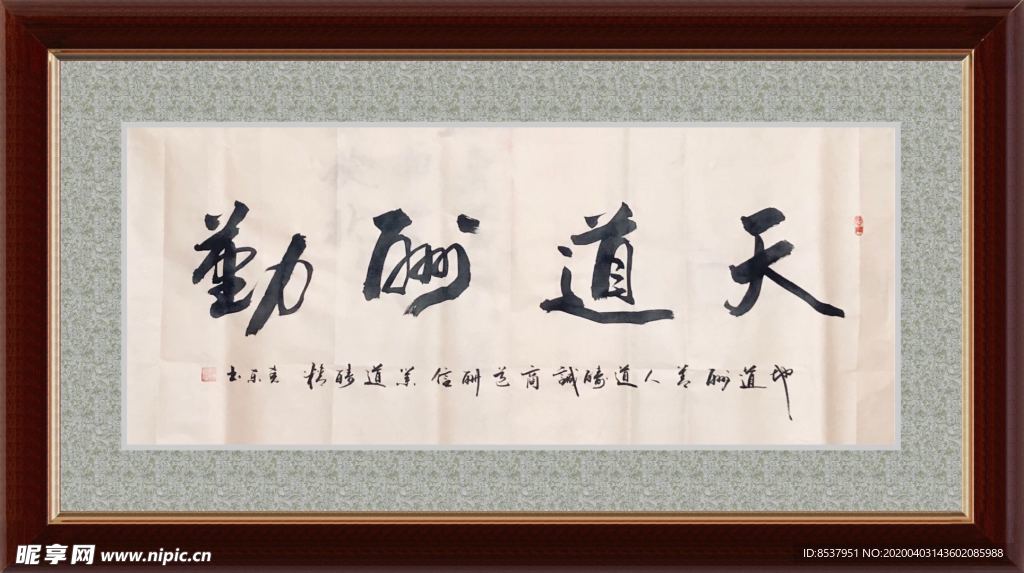 天道酬勤
地道酬善人道酬誠商道酬信業道酬精
昵享网 www.nipic.cn
ID:8537951 NO:20200403143602085988